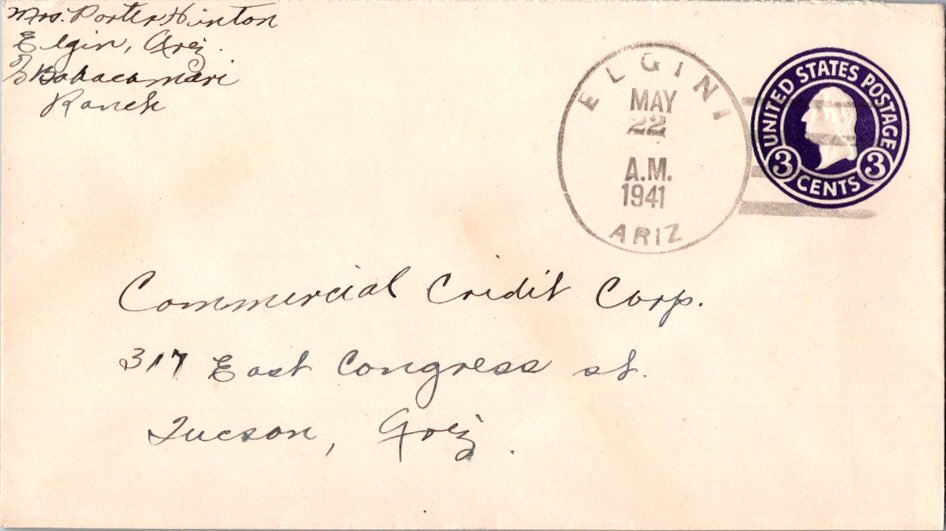 Mrs. Porter Hinton
Elgin, Ariz.
% Babacomari
Ranch
ELGIN
MAY
22
A.M.
1941
ARIZ
UNITED STATES POSTAGE
3 CENTS 3
Commercial Credit Corp.
317 East Congress st.
Tucson, Ariz.